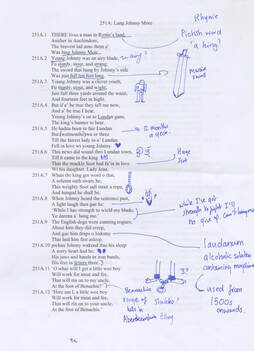 251A: Lang Johnny More
251A.1 THERE lives a man in Rynie's land,
Anither in Auchindore,
The bravest lad amo them a'
Was lang Johnny More.
251A.2 Young Johnny was an airy blade,
Fu sturdy, stout, and strang;
The sword that hang by Johnny's side
Was just full ten feet lang.
251A.3 Young Johnny was a clever youth,
Fu sturdy, stout, and wight,
Just full three yards around the waist,
And fourteen feet in hight.
251A.4 But if a' be true they tell me now,
And a' be true I hear,
Young Johnny's on to Lundan gane,
The king's banner to bear.
251A.5 He hadna been in fair Lundan
But twalmonths twa or three
Till the fairest lady in a' Lundan
Fell in love wi young Johnny.
251A.6 This news did sound thro Lundan town,
Till it came to the king
That the muckle Scot had fa'in in love
Wi his daughter, Lady Jean.
251A.7 Whan the king got word o that,
A solemn oath sware he,
This weighty Scot sall strait a rope,
And hanged he shall be.
251A.8 When Johnny heard the sentence past,
A light laugh then gae he:
'While I hae strength to wield my blade,
Ye darena a' hang me.'
251A.9 The English dogs were cunning rogues;
About him they did creep,
And gae him drops o lodomy
That laid him fast asleep.
251A.10 Whan Johnny wakend frae his sleep
A sorry heart had he;
His jaws and hands in iron bands,
His feet in fetters three.
251A.11 'O whar will I get a little wee boy
Will work for meat and fee,
That will rin on to my uncle,
At the foot of Benachie?'
251A.12 'Here am I, a little wee boy
Will work for meat and fee,
That will rin on to your uncle,
At the foot of Benachie.'
Rhynie
Pictish word
"a king"
12 months
a year.
Huge
Scot
While I've got
strength to fight I'll
no give up. Can't hang me
laudanum
alcoholic solution
containing morphine
used from
1500s
onwards.
Bennachie
range of
hills in
Aberdeenshire